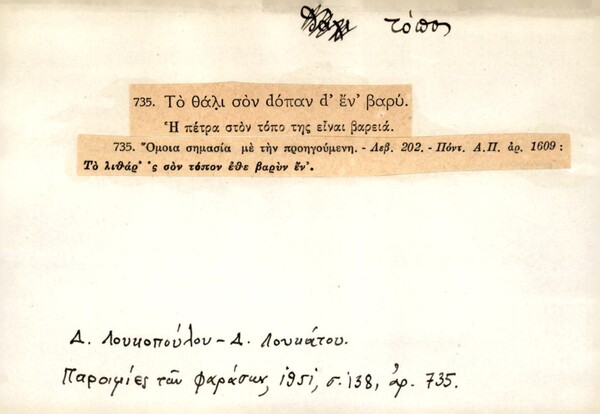 τόπος
735. Τὸ θάλι σὸν dόπαν d' ἔν' βαρύ.
Ἡ πέτρα στὸν τόπο της εἶναι βαρειά.
735. Ὅμοια σημασία μὲ τὴν προηγούμενη. - Λεβ. 202. - Πόντ. Α.Π. ἀρ. 1609 :
Τὸ λιθάρ' 'ς σὸν τόπον ἐθε βαρὺν ἔν'.
Δ. Λουκοπούλου - Δ. Λουκάτου.
Παροιμίες τῶν Φαράσων, 1951, σ. 138, ἀρ. 735.